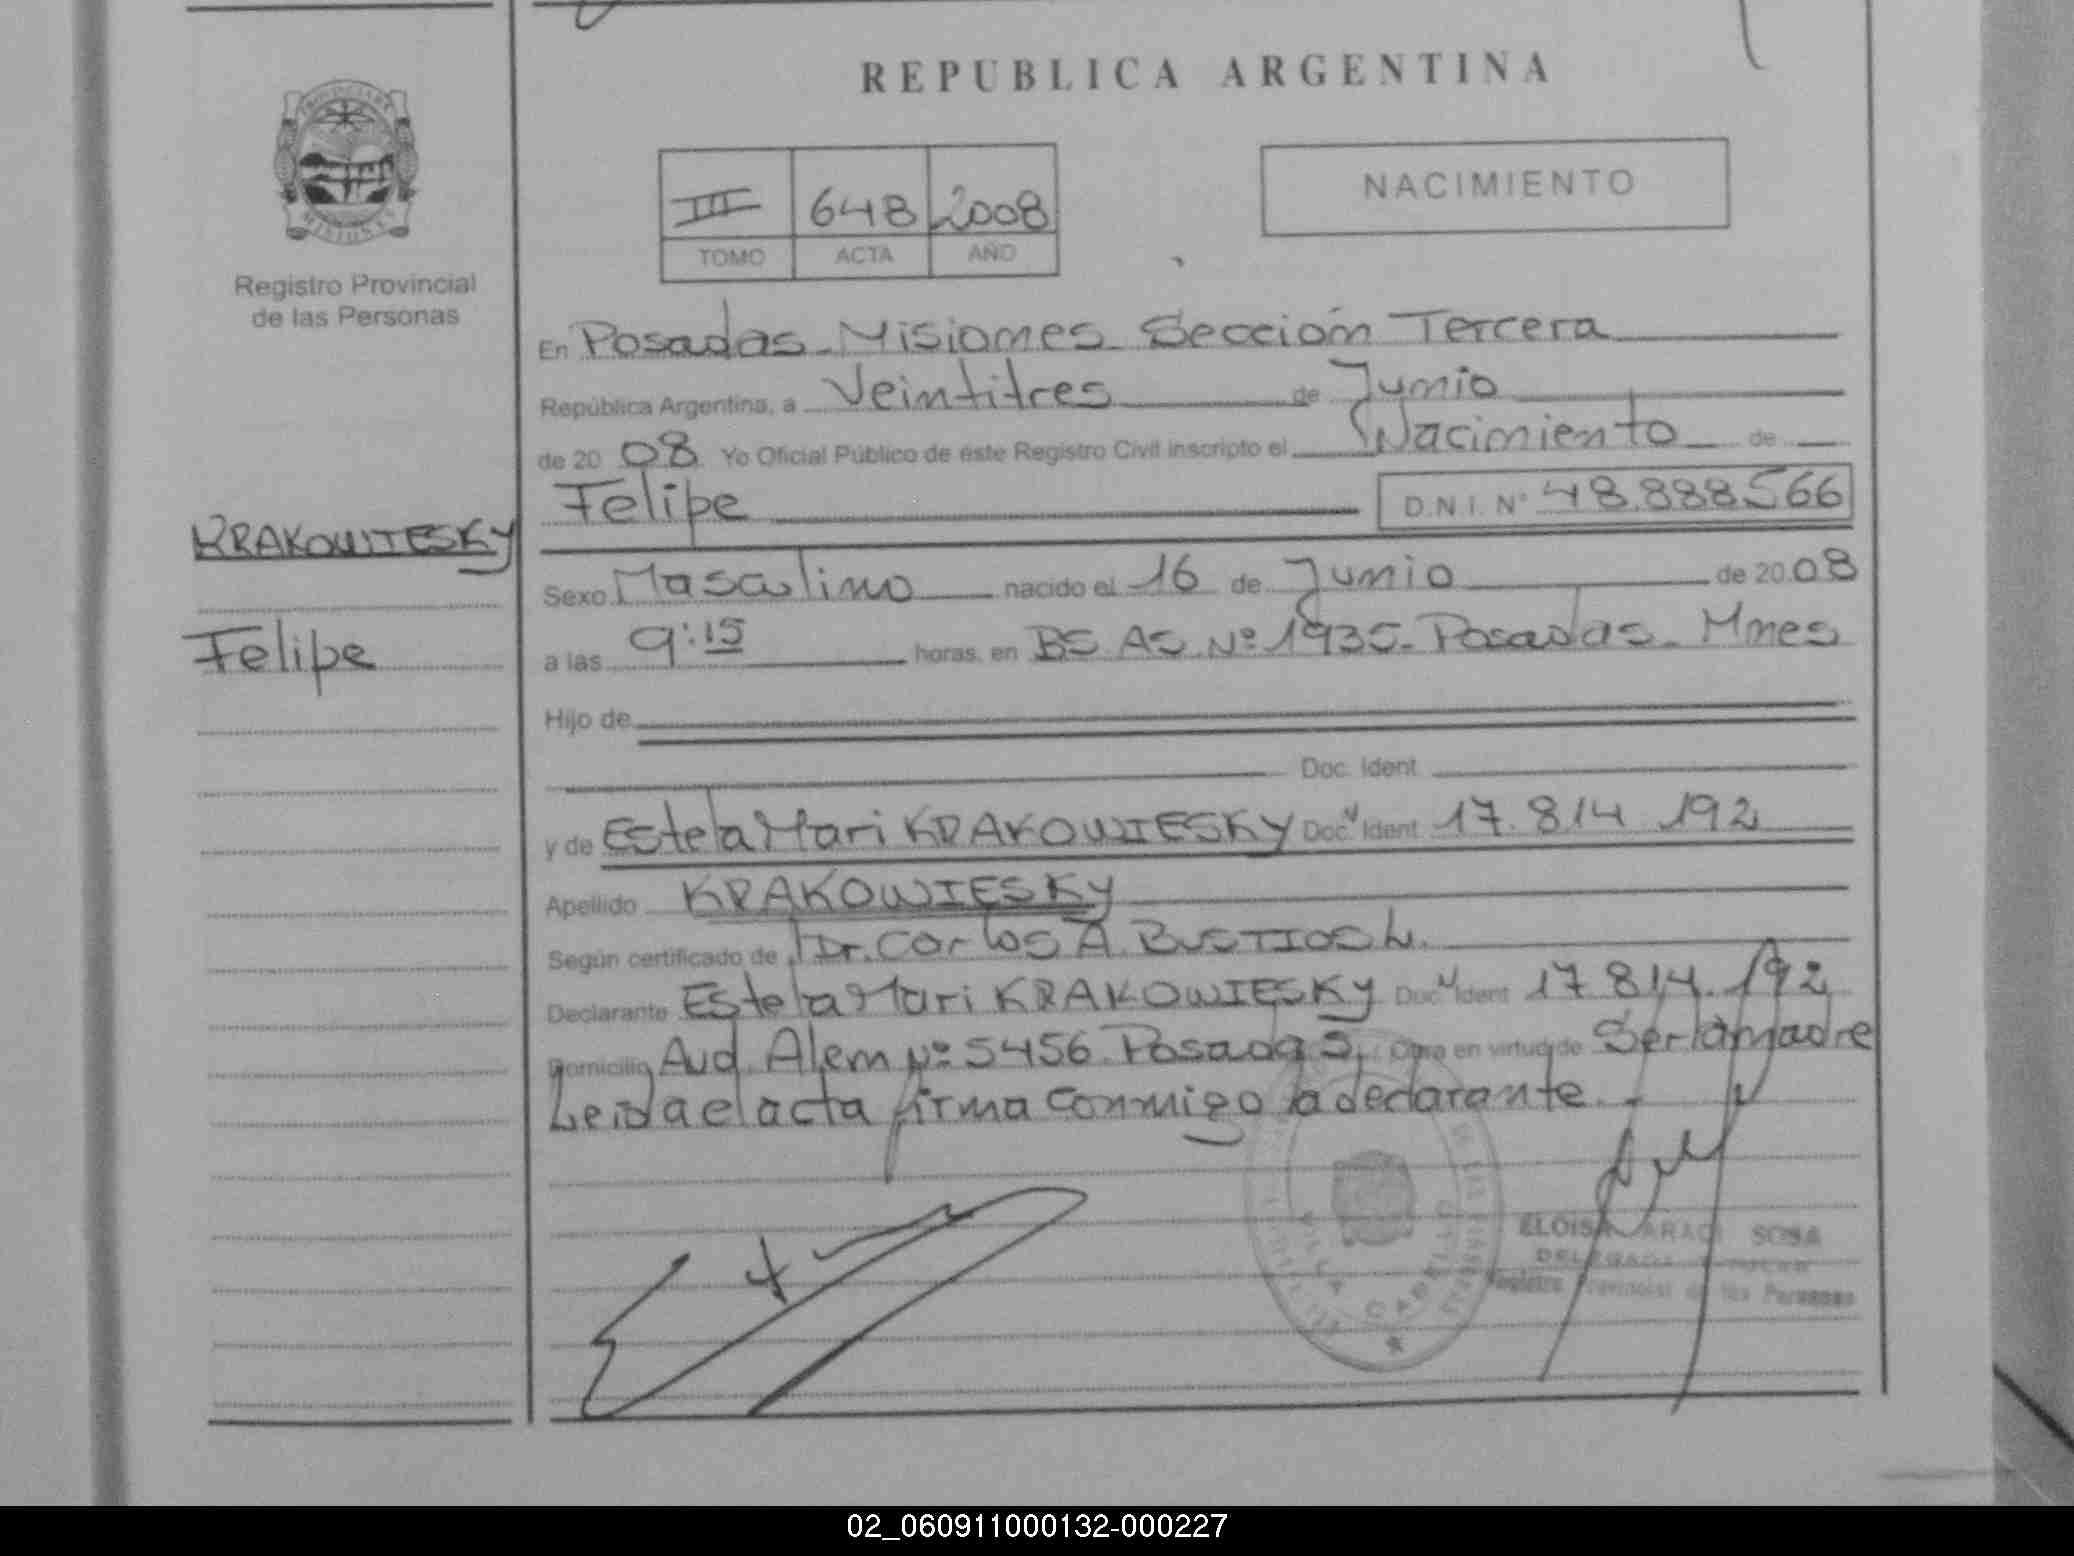 REPUBLICA ARGENTINA
NACIMIENTO
III 648 2008
TOMO ACTA AÑO
Registro Provincial
de las Personas
En Posadas - Misiones - Sección Tercera
República Argentina, a Veintitres de Junio
de 20 08 Yo Oficial Público de éste Registro Civil inscripto el Nacimiento de
Felipe D.N.I. Nº 48.888566
KRAKOWIESKY
Felipe
Sexo Masculino nacido el 16 de Junio de 20 08
a las 9:15 horas, en BS AS Nº 1935 - Posadas - Mnes
Hijo de
Doc. Ident.
y de Estela Mari KRAKOWIESKY Doc. Ident. 17.814.192
Apellido KRAKOWIESKY
Según certificado de Dr. Carlos A. BUSTIOS L.
Declarante Estela Mari KRAKOWIESKY Doc. Ident. 17.814.192
Domicilio Avd. Alem Nº 5456 Posadas, Obra en virtud de Ser la madre
Leida el acta firma conmigo la declarante.
SOSA
Registro Provincial de las Personas
VILLA CABELLO
02_060911000132-000227